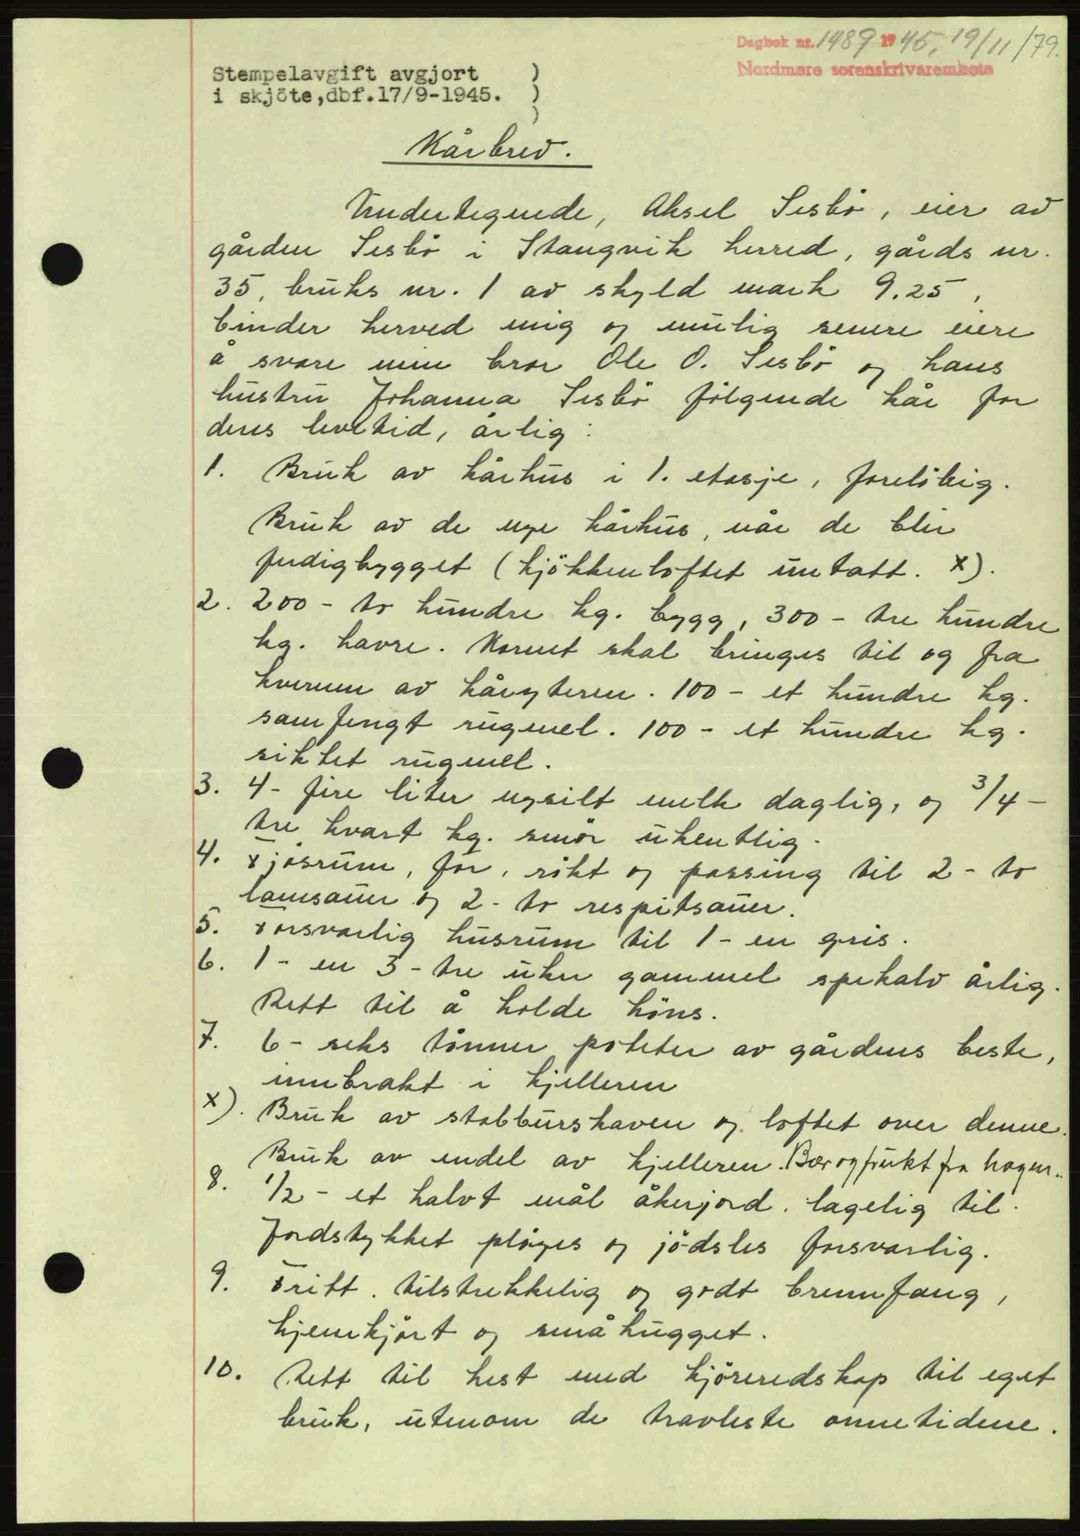 Dagbok nr. 1489 1945, 19/11/79.
Nordmøre sorenskriverembete
Stempelavgift avgjort )
i skjöte,dbf.17/9-1945. )
)
Kårbrev.
Undertegnede, Aksel Sesbö, eier av
gården Sesbö i Stangvik herred, gårds nr.
35, bruks nr. 1 av skyld mark 9.25,
binder herved mig og mulig senere eiere
å svare min bror Ole O. Sesbö og hans
hustru Johanna Sesbö fölgende kår for
deres levetid, årlig:
1. Bruk av kårhus i 1. etasje, forelöbig.
Bruk av de nye kårhus, når de blir
ferdigbygget (kjökkenloftet untatt. x).
2. 200 - to hundre kg. bygg, 300 - tre hundre
kg. havre. Kornet skal bringes til og fra
kvernen av kåryteren. 100 - et hundre kg.
samfengt rugmel. 100 - et hundre kg.
siktet rugmel.
3. 4 - fire liter nysilt melk daglig, og 3/4 -
tre kvart kg. smör ukentlig.
4. Fjösrum, fôr, rökt og passing til 2 - to
lamsauer og 2 - to respitsauer.
5. Forsvarlig husrum til 1 - en gris.
6. 1 - en 3 - tre uker gammel spekalv årlig.
Rett til å holde höns.
7. 6 - seks tönner poteter av gårdens beste,
innbrakt i kjelleren
x). Bruk av stabburshaven og loftet over denne.
Bruk av endel av kjelleren. Bær og frukt fra hagen..
8. 1/2 - et halvt mål åkerjord. lagelig til.
Jordstykket plöyes og jödsles forsvarlig.
9. Fritt. tilstrekkelig og godt brennfang,
hjemkjört og småhugget.
10. Rett til hest med kjöreredskap til eget
bruk, utenom de travleste onnetidene.